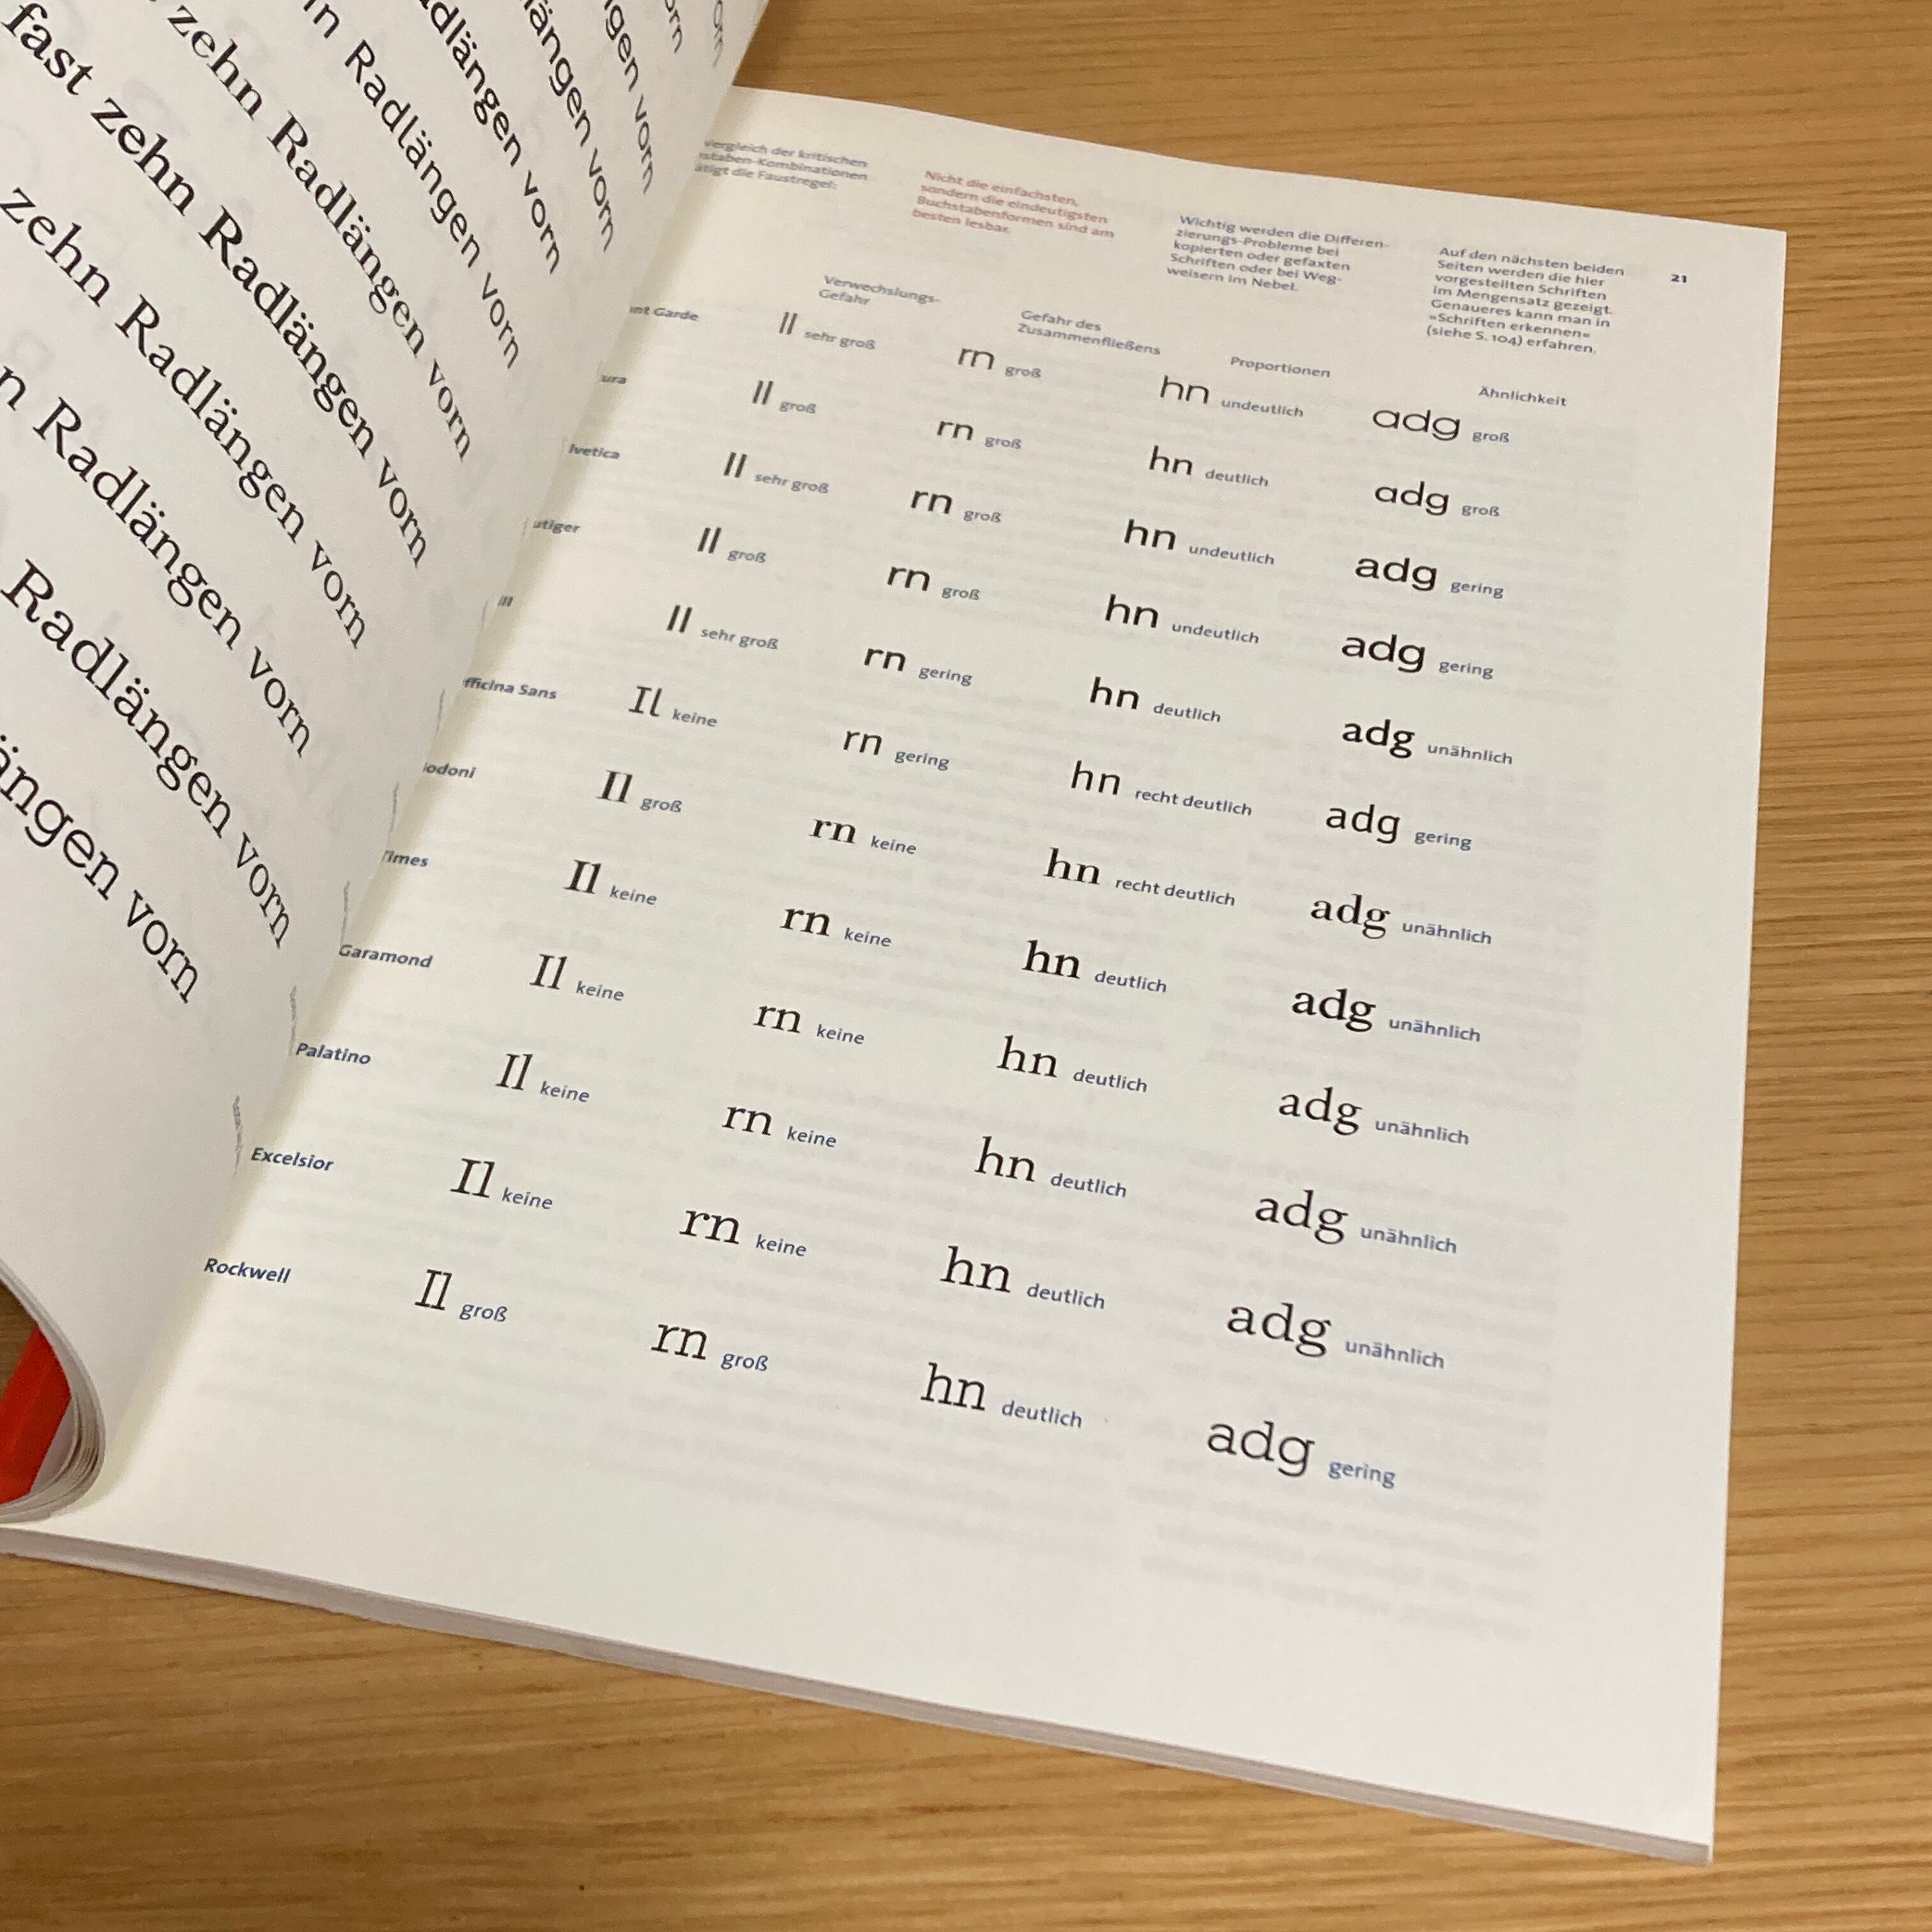 vorn
orn
ngen vorn
längen vorn
dlängen vorn
n Radlängen vorn
zehn Radlängen vorn
fast zehn Radlängen vorn
zehn Radlängen vorn
n Radlängen vorn
Radlängen vorn
ängen vorn
vergleich der kritischen
staben-Kombinationen
ätigt die Faustregel:
Nicht die einfachsten,
sondern die eindeutigsten
Buchstabenformen sind am
besten lesbar.
Wichtig werden die Differen-
zierungs-Probleme bei
kopierten oder gefaxten
Schriften oder bei Weg-
weisern im Nebel.
Auf den nächsten beiden
Seiten werden die hier
vorgestellten Schriften
im Mengensatz gezeigt.
Genaueres kann man in
»Schriften erkennen«
(siehe S. 104) erfahren.
21
Verwechslungs-
Gefahr
Gefahr des
Zusammenfließens
Proportionen
Ähnlichkeit
nt Garde Il sehr groß rn groß hn undeutlich adg groß
ura Il groß rn groß hn deutlich adg groß
lvetica Il sehr groß rn groß hn undeutlich adg gering
utiger Il groß rn groß hn undeutlich adg gering
ill Il sehr groß rn gering hn deutlich adg unähnlich
fficina Sans Il keine rn gering hn recht deutlich adg gering
odoni Il groß rn keine hn recht deutlich adg unähnlich
Times Il keine rn keine hn deutlich adg unähnlich
Garamond Il keine rn keine hn deutlich adg unähnlich
Palatino Il keine rn keine hn deutlich adg unähnlich
Excelsior Il keine rn keine hn deutlich adg unähnlich
Rockwell Il groß rn groß hn deutlich adg gering